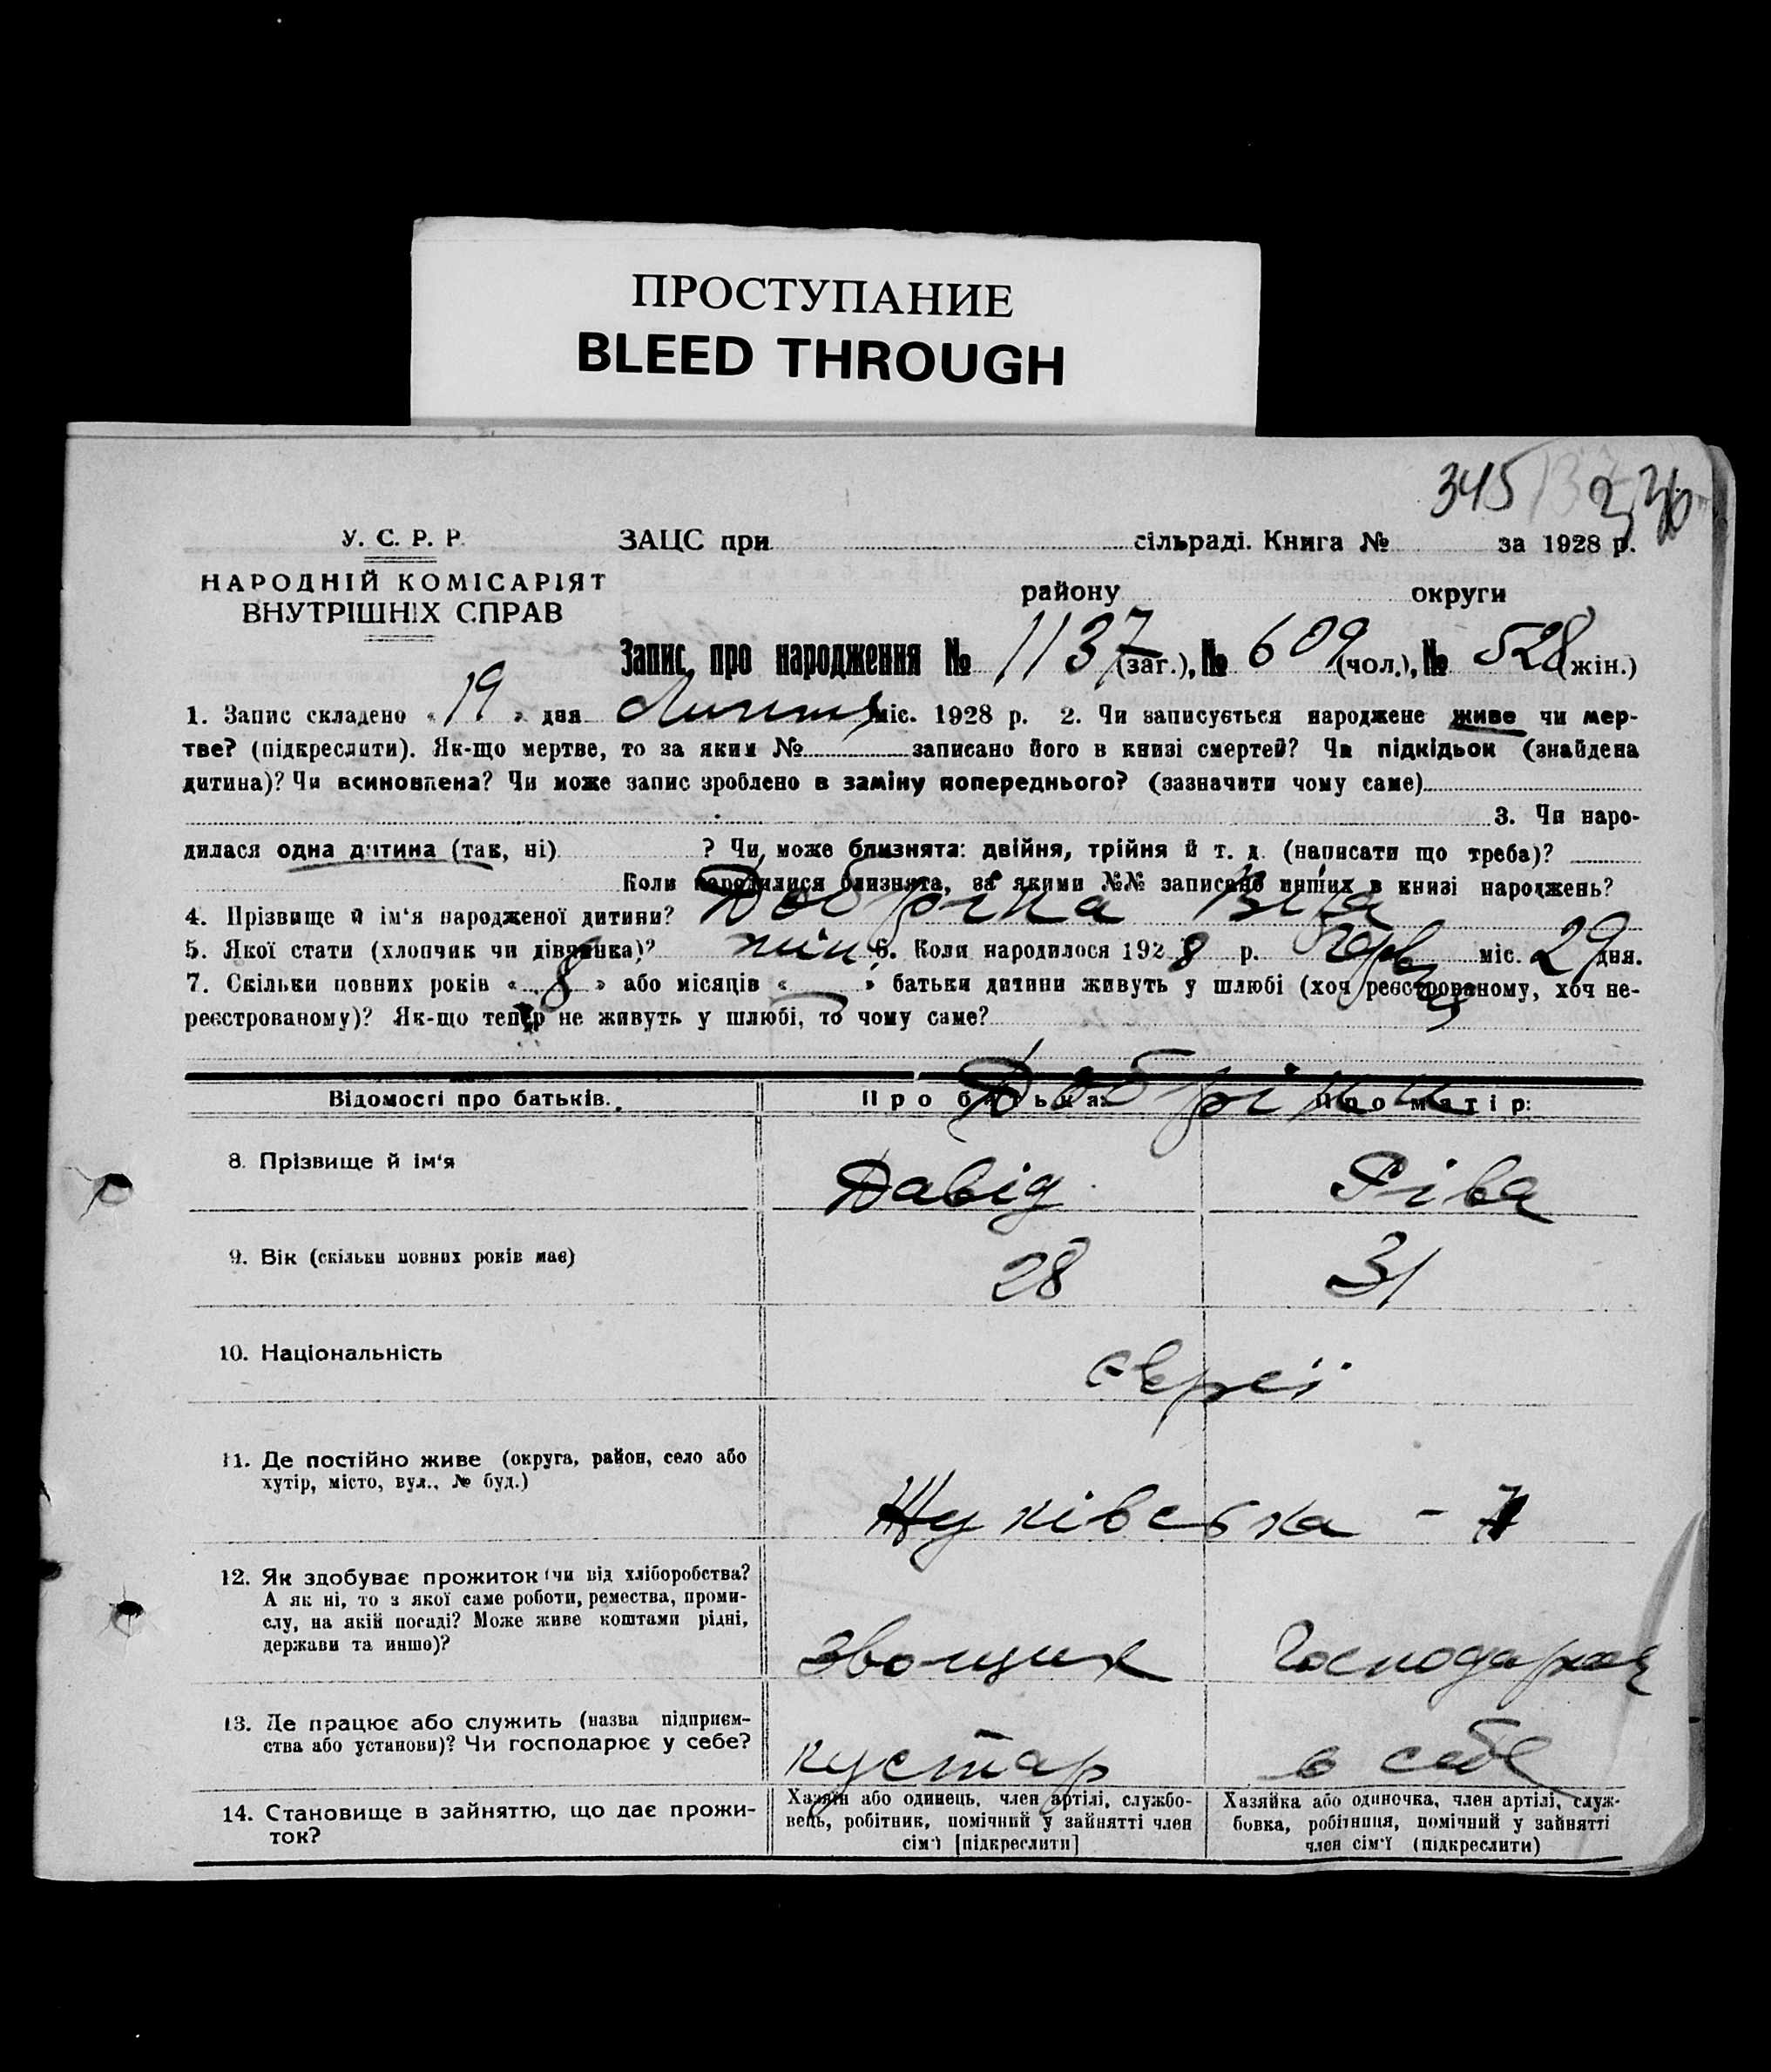 ПРОСТУПАНИЕ
BLEED THROUGH
345
У. С. Р. Р.
ЗАЦС при сільраді. Книга № за 1928 р.
НАРОДНІЙ КОМІСАРІЯТ
ВНУТРІШНІХ СПРАВ
району округи
Запис про народження № 1137 (заг.), № 609 (чол.), № 528 (жін.)
1. Запис складено «19» дня Липня міс. 1928 р. 2. Чи записується народжене живе чи мер-
тве? (підкреслити). Як-що мертве, то за яким № записано його в книзі смертей? Чи підкідьок (знайдена
дитина)? Чи всиновлена? Чи може запис зроблено в заміну попереднього? (зазначити чому саме)
3. Чи наро-
дилася одна дитина (так, ні) ? Чи може близнята: двійня, трійня й т. д. (написати що треба)?
Коли народилися близнята, за якими №№ записано інших в книзі народжень?
4. Прізвище й ім'я народженої дитини? Добріна
5. Якої стати (хлопчик чи дівчинка)? жін. 6. Коли народилося 1928 р. Червця міс. 29 дня.
7. Скільки повних років «8» або місяців «—» батьки дитини живуть у шлюбі (хоч реєстрованому, хоч не-
реєстрованому)? Як-що тепер не живуть у шлюбі, то чому саме?
Добріни
Відомості про батьків. Про батька: Про матір:
8. Прізвище й ім'я Давід Ріва
9. Вік (скільки повних років має) 28 31
10. Національність євреї
11. Де постійно живе (округа, район, село або
хутір, місто, вул., № буд.)
Жуківська - 7
12. Як здобуває прожиток (чи від хліборобства?
А як ні, то з якої саме роботи, ремества, проми-
слу, на якій посаді? Може живе коштами рідні,
держави та инше)?
Звощик Господарка
13. Де працює або служить (назва підприєм-
ства або установи)? Чи господарює у себе?
кустар в себе
14. Становище в зайняттю, що дає прожи-
ток?
Хазяїн або одинець, член артілі, службо-
вець, робітник, помічний у зайнятті член
сім'ї [підкреслити]
Хазяйка або одиночка, член артілі, служ-
бовка, робітниця, помічний у зайнятті
член сім'ї (підкреслити)